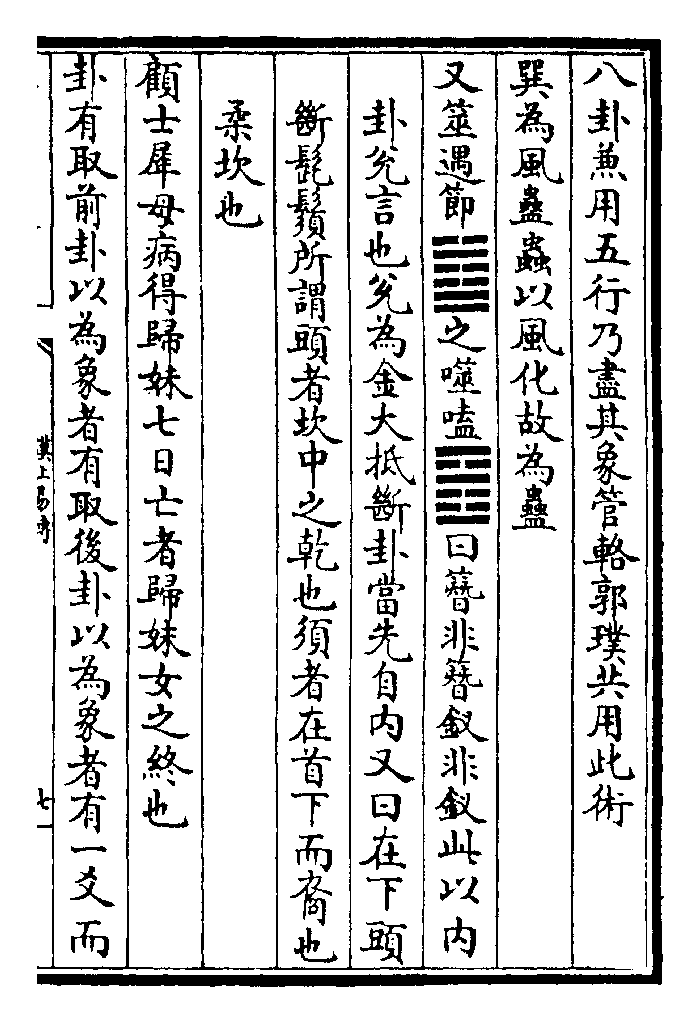 八卦兼用五行乃盡其象管輅郭璞共用此術
巽為風蠱蟲以風化故為蠱
又筮遇節䷻之噬嗑䷔曰簪非簪釵非釵此以内
卦兊言也兊為金大抵斷卦當先自内又曰在下頭
斷髭鬚所謂頭者坎中之乾也須者在首下而裔也
柔坎也
顧士犀母病得歸妹七日亡者歸妹女之終也
卦有取前卦以為象者有取後卦以為象者有一爻而
漢上易傳
七